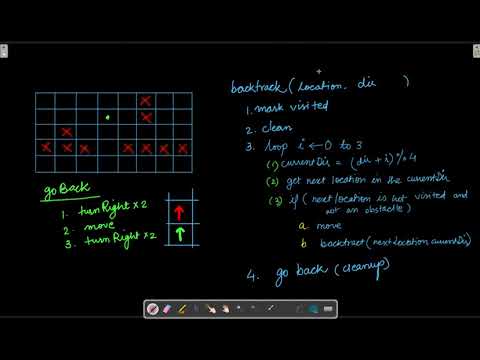 backtrack ( location, dir )
1. mark visited
2. clean
3. loop i ← 0 to 3
(1) currentDir = (dir + i) % 4
(2) get next location in the currentDir
(3) if ( next location is not visited and
not an obstacle)
a. move
b backtrack (nextLocation currentDir)
4. go back (cleanup)
go Back
1. turnRight x 2
2. move
3. turnRight x 2